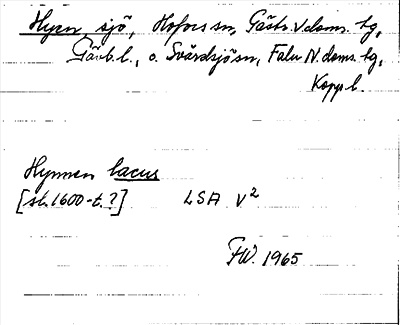 Hyen, sjö, Hofors sn, Gästr. V. doms. tg,
Gävb. l., o. Svärdsjö sn, Falu N. doms. tg,
Kopp. l.
Hynnen lacus
[sl. 1600-t. ?] LSA V²
FW. 1965